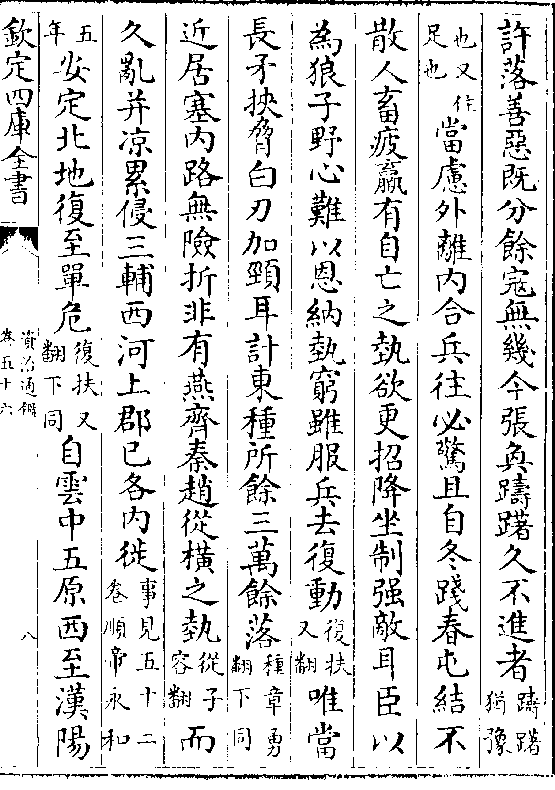 許落善惡既分餘寇無幾今張奐躊躇久不進者躊躇猶豫
也又作足也當慮外離內合兵往必驚且自冬踐春屯結不
散人畜疲羸有自亡之埶欲更招降坐制强敵耳臣以
為狼子野心難以恩納埶窮雖服兵去復動復扶又翻唯當
長矛挾脅白刃加頸耳計東種所餘三萬餘落種章勇翻下同
近居塞内路無險折非有燕齊秦趙從橫之埶從子容翻而
久亂并凉累侵三輔西河上郡已各内徙事見五十二卷順帝永和
五年安定北地復至單危復扶又翻下同自雲中五原西至漢陽
欽定四庫全書
資治通鑑
卷五十六
八